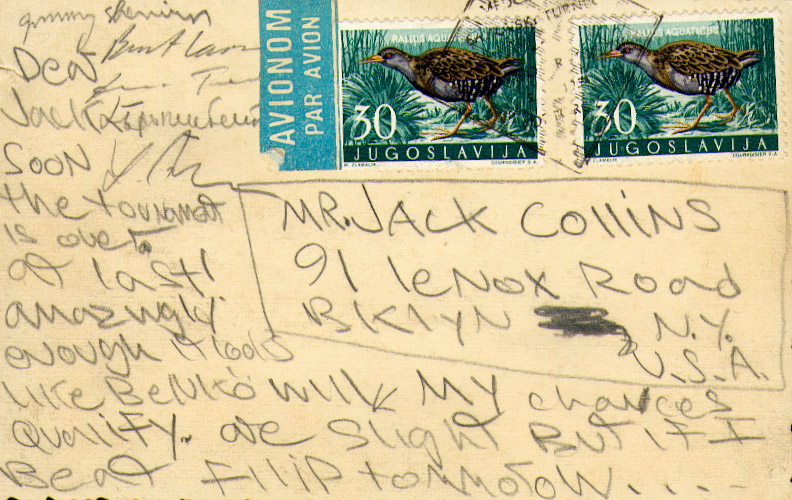 Jimmy Sherwin
AVIONOM
PAR AVION
RALLUS AQUATICUS
30
JUGOSLAVIJA
COURVOISIER S.A.
RALLUS AQUATICUS
30
JUGOSLAVIJA
COURVOISIER S.A.
Dear
Jack
Soon
the tournament
is over
at last!
amazingly
enough it looks
like Belko will
qualify. My chances
are slight But if I
Beat Filip tommorow....
MR. JACK COllINS
91 leNOX Road
BKlYN N.Y.
U.S.A.